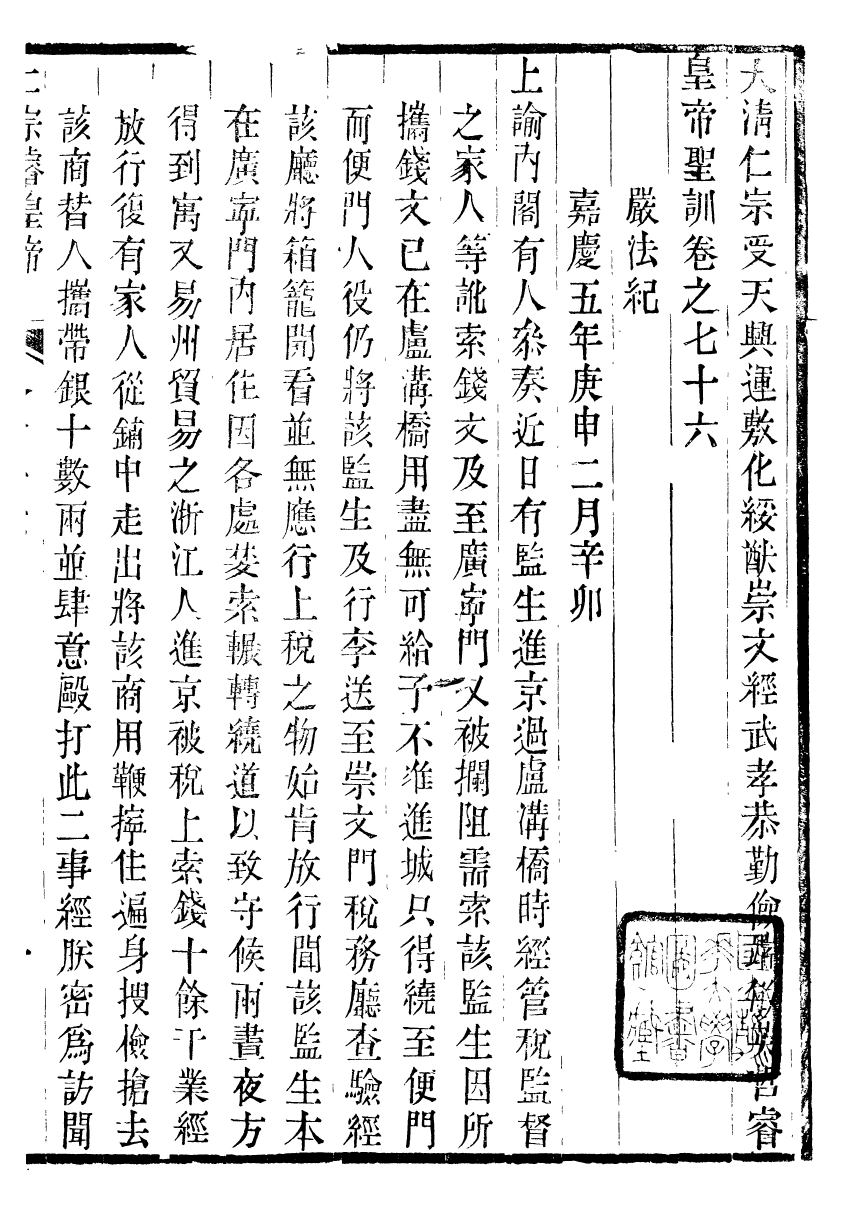 大清仁宗受天興運敷化綏猷崇文經武孝恭勤儉端敏英哲睿
皇帝聖訓卷之七十六
嚴法紀
嘉慶五年庚申二月辛卯
上諭內閣有人叅奏近日有監生進京過盧溝橋時經管稅監督
之家人等訛索錢文及至廣寧門又被攔阻需索該監生因所
攜錢文已在盧溝橋用盡無可給予不准進城只得繞至便門
而便門人役仍將該監生及行李送至崇文門稅務廳查驗經
該廳將箱籠開看並無應行上稅之物始肯放行聞該監生本
在廣寧門內居住因各處婪索輾轉繞道以致守候兩晝夜方
得到寓又易州貿易之浙江人進京被稅上索錢十餘千業經
放行復有家人從鋪中走出將該商用鞭擰住遍身搜檢搶去
該商替人攜帶銀十數兩並肆意毆打此二事經朕密爲訪聞
仁宗睿皇帝